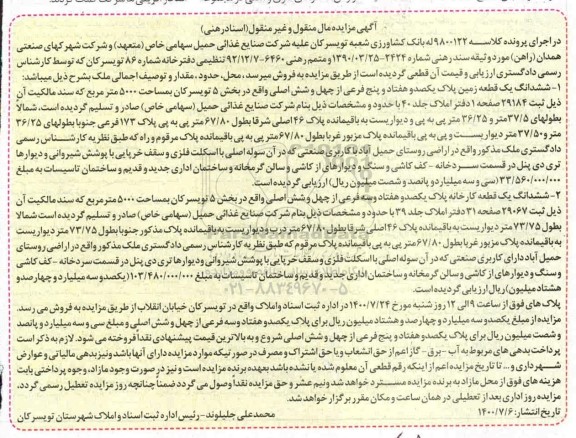 آگهی مزایده مال منقول و غیر منقول (اسناد رهنی)
در اجرای پرونده کلاسه ۹۸۰۰۱۲۲ له بانک کشاورزی شعبه تویسرکان علیه شرکت صنایع غذائی حمیل سهامی خاص (متعهد) و شرکت شهرکهای صنعتی
همدان (راهن) مورد وثیقه سند رهنی شماره ۲۴۲۴-۱۳۹۰/۰۳/۲۵ و متمم رهنی ۶۴۶۰-۹۲/۱۲/۷ تنظیمی دفترخانه شماره ۸۶ تویسرکان که توسط کارشناس
رسمی دادگستری ارزیابی و قیمت آن قطعی گردیده است از طریق مزایده به فروش میرسد، محل، حدود، مقدار و توصیف اجمالی ملک بشرح ذیل میباشد:
۱- ششدانگ یک قطعه زمین پلاک یکصدو هفتاد و پنج فرعی از چهل و شش اصلی واقع در بخش ۵ تویسرکان بمساحت ۵۰۰۰ متر مربع که سند مالکیت آن
ذیل ثبت ۲۹۱۸۴ صفحه ۱ دفتر املاک جلد ۴۰ با حدود و مشخصات ذیل بنام شرکت صنایع غذائی حمیل (سهامی خاص) صادر و تسلیم گردیده است، شمالا
بطولهای ۳۷/۵ متر و ۳۶/۲۵ متر پی به پی و دیواریست به باقیمانده پلاک ۴۶ اصلی شرقا بطول ۶۷/۸۰ متر پی به پی پلاک ۱۷۳ فرعی جنوبا بطولهای ۳۶/۲۵
متر و ۳۷/۵۰ متر دیواریست و پی به پی باقیمانده پلاک مزبور غربا بطول ۶۷/۸۰ متر پی به پی باقیمانده پلاک مرقوم و راه که طبق نظریه کارشناس رسمی
دادگستری ملک مذکور واقع در اراضی روستای حمیل آباد با کاربری صنعتی که در آن سوله اصلی با اسکلت فلزی و سقف خرپایی با پوشش شیروانی و دیوارها
تری دی پنل در قسمت سردخانه - کف کاشی و سنگ و دیوارهای از کاشی و سالن گرمخانه و ساختمان اداری جدید و قدیم و ساختمان تاسیسات به مبلغ
۳۳/۵۶۰/۰۰۰/۰۰۰ (سی و سه میلیارد و پانصد و شصت میلیون ریال) ارزیابی گردیده است.
۲- ششدانگ یک قطعه کارخانه پلاک یکصدو هفتاد و سه فرعی از چهل و شش اصلی واقع در بخش ۵ تویسرکان بمساحت ۵۰۰۰ متر مربع که سند مالکیت آن
ذیل ثبت ۲۹۰۶۷ صفحه ۳۱ دفتر املاک جلد ۳۹ با حدود و مشخصات ذیل بنام شرکت صنایع غذائی حمیل (سهامی خاص) صادر و تسلیم گردیده است شمالا
بطول ۷۳/۷۵ متر دیواریست به باقیمانده پلاک ۴۶ اصلی شرقا بطول ۶۷/۸۰ متر درب و دیواریست به باقیمانده پلاک مذکور جنوبا بطول ۷۳/۷۵ متر دیواریست
به باقیمانده پلاک مزبور غربا بطول ۶۷/۸۰ متر پی به پی باقیمانده پلاک مرقوم که طبق نظریه کارشناس رسمی دادگستری ملک مذکور واقع در اراضی روستای
حمیل آباد دارای کاربری صنعتی که در آن سوله اصلی با اسکلت فلزی و سقف خرپایی با پوشش شیروانی و دیوارها تری دی پنل در قسمت سردخانه - کف کاشی
و سنگ و دیوارهای از کاشی و سالن گرمخانه و ساختمان اداری جدید و قدیم و ساختمان تاسیسات به مبلغ ۱۰۳/۴۸۰/۰۰۰/۰۰۰ (یکصدو سه میلیارد و چهارصد و
هشتاد میلیون) ریال ارزیابی گردیده است.
پلاک های فوق از ساعت ۹ الی ۱۲ روز شنبه مورخ ۱۴۰۰/۷/۲۴ در اداره ثبت اسناد و املاک واقع در تویسرکان خیابان انقلاب از طریق مزایده به فروش می رسد.
مزایده از مبلغ یکصدو سه میلیارد و چهارصد و هشتاد میلیون ریال برای پلاک یکصدو هفتاد و سه فرعی از چهل و شش اصلی و مبلغ سی و سه میلیارد و پانصد
و شصت میلیون ریال برای پلاک یکصدو هفتاد و پنج فرعی از چهل و شش اصلی شروع و به بالاترین قیمت پیشنهادی نقدا فروخته می شود. لازم به ذکر است
پرداخت بدهی های مربوط به آب - برق - گاز اعم از حق انشعاب و یا حق اشتراک و مصرف در صورتیکه مورد مزایده دارای آنها باشد و نیز بدهی مالیاتی و عوارض
شهرداری و... تا تاریخ مزایده اعم از اینکه رقم قطعی آن معلوم شده یا نشده باشد بعهده برنده مزایده است و نیز در صورت وجود مازاد، وجوه پرداختی بابت
هزینه های فوق از محل مازاد به برنده مزایده مسترد خواهد شد و نیم عشر و حق مزایده نقدا وصول می گردد ضمنا چنانچه روز مزایده تعطیل رسمی گردد،
مزایده روز اداری بعد از تعطیلی در همان ساعت و مکان مقرر برگزار خواهد شد.
تاریخ انتشار: ۱۴۰۰/۷/۶
محمدعلی جلیلوند - رئیس اداره ثبت اسناد و املاک شهرستان تویسرکان
۰۲۱-۸۸۳۴۹۶۷۰-۵